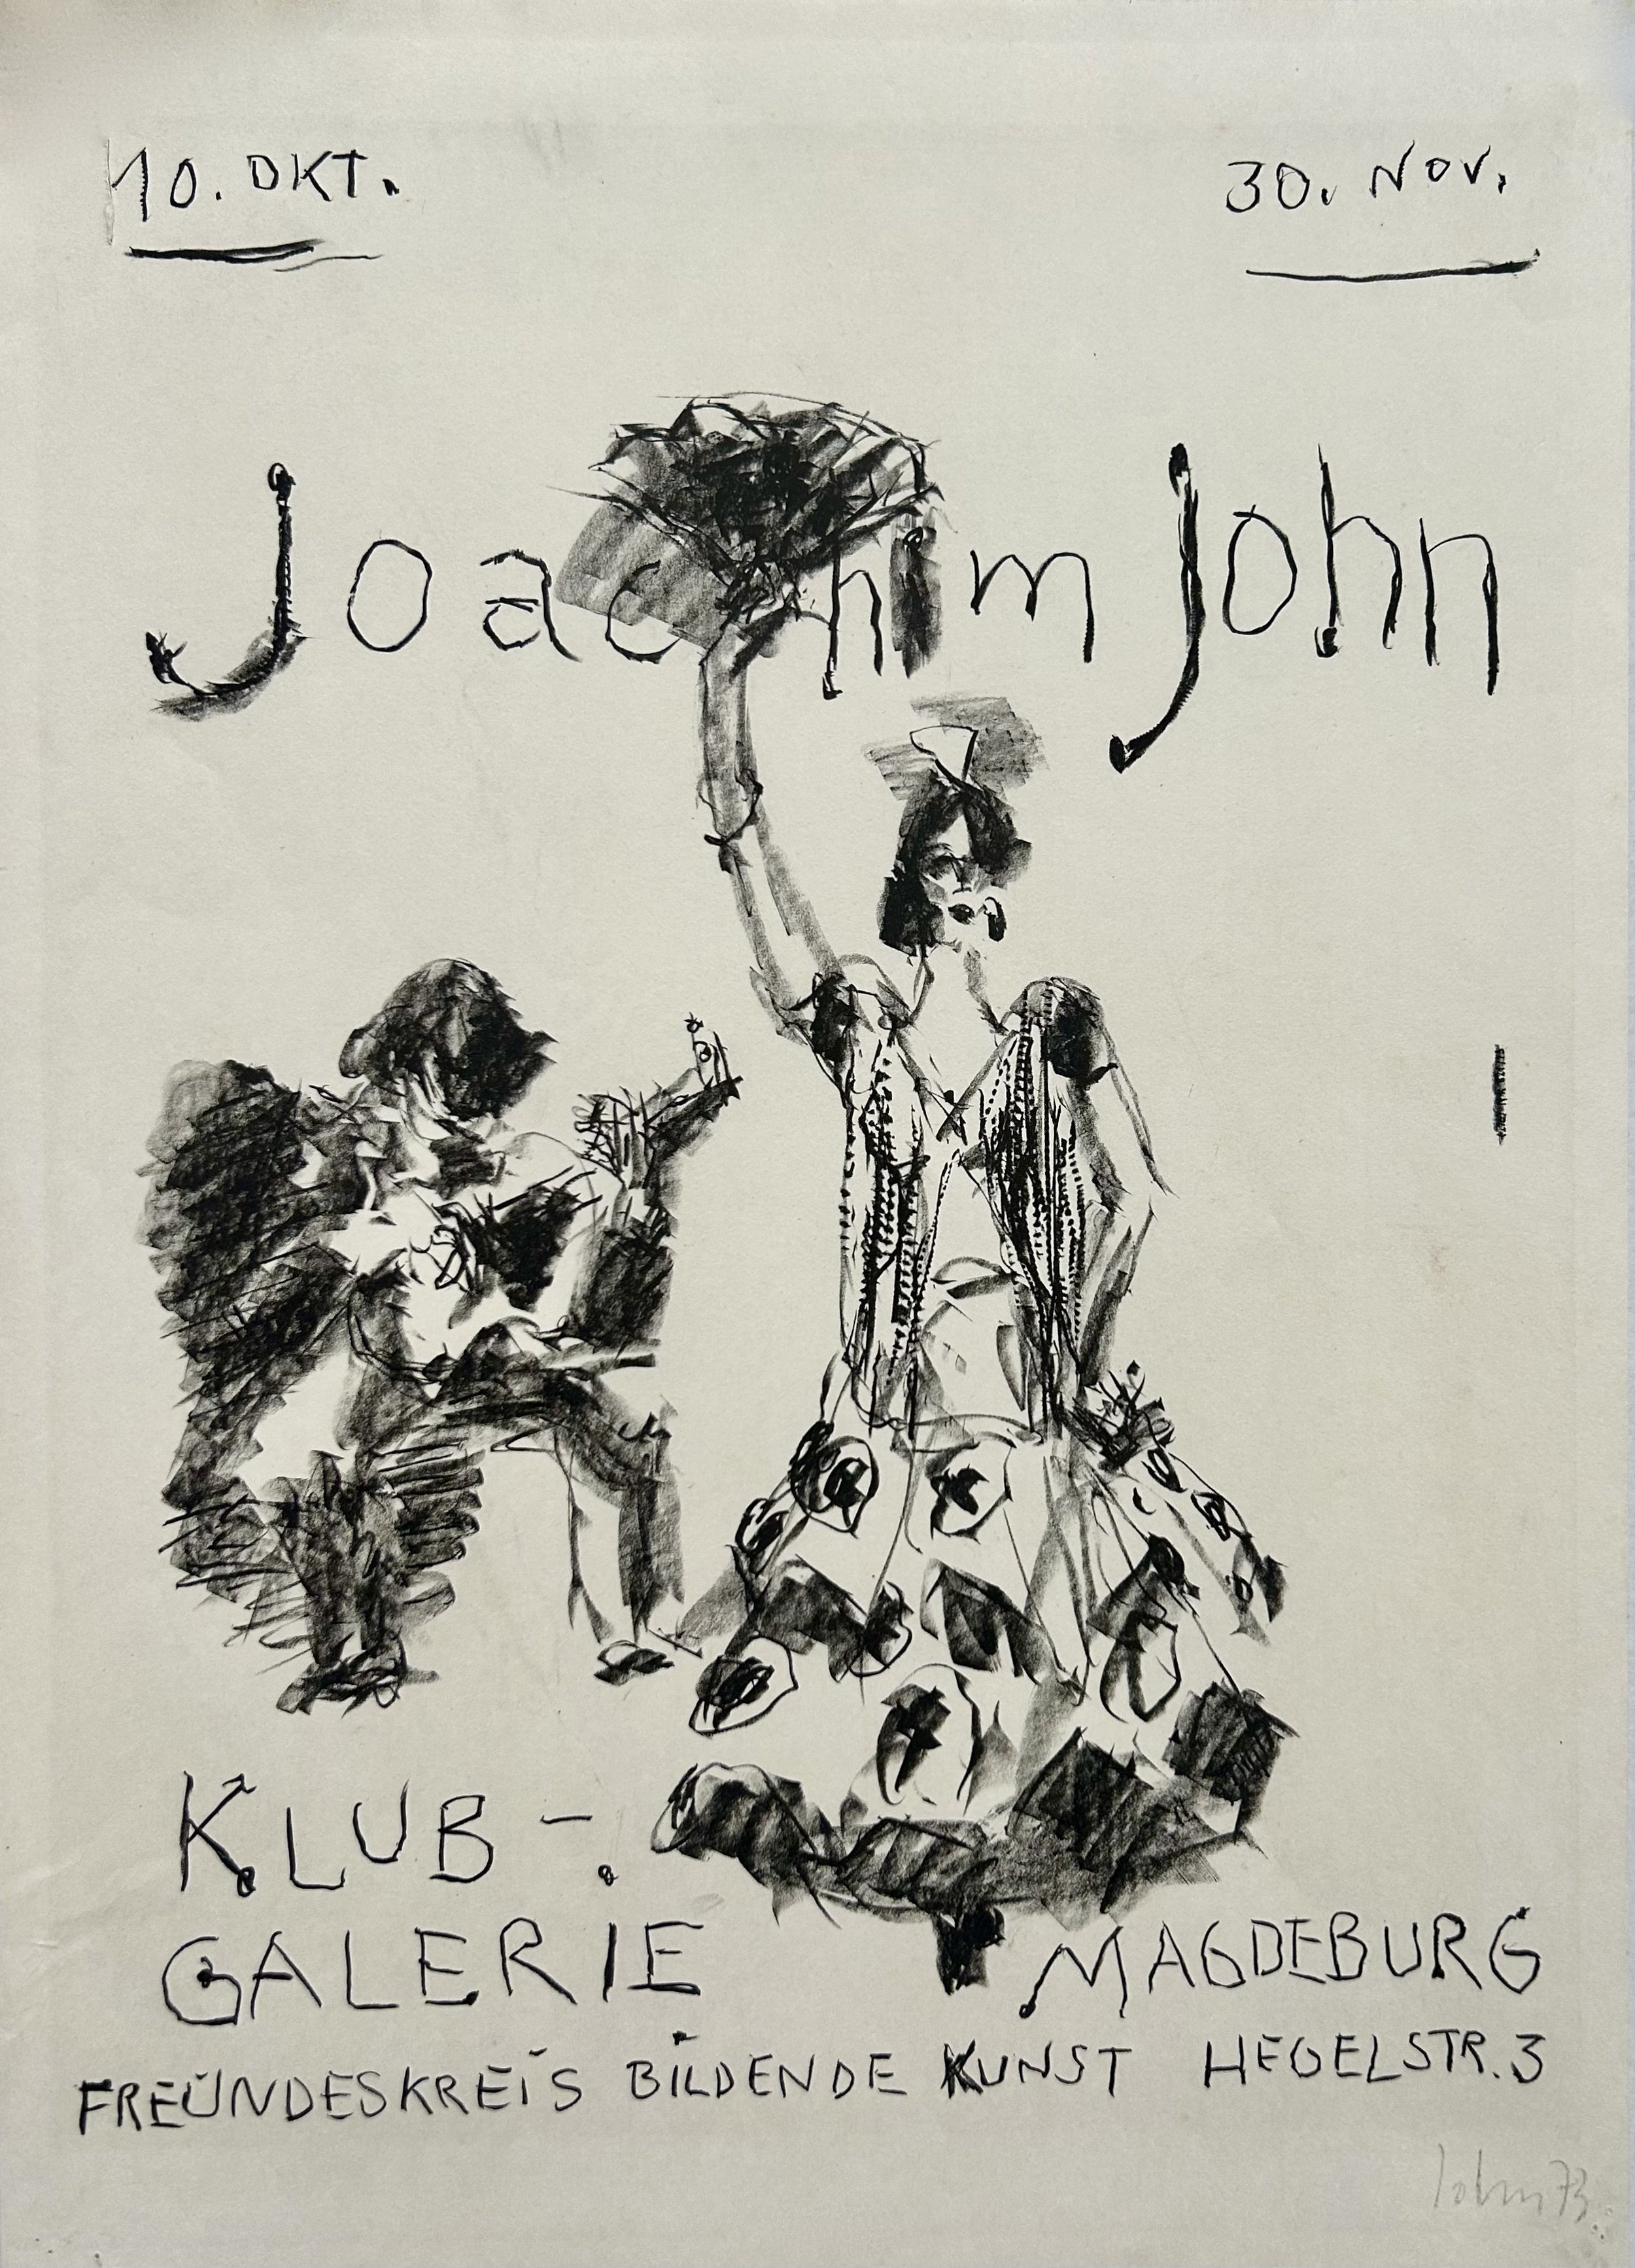 10. OKT. 30. NOV.
Joachim John
KLUB-
GALERIE MAGDEBURG
FREUNDESKREIS BILDENDE KUNST HEGELSTR. 3
John 73